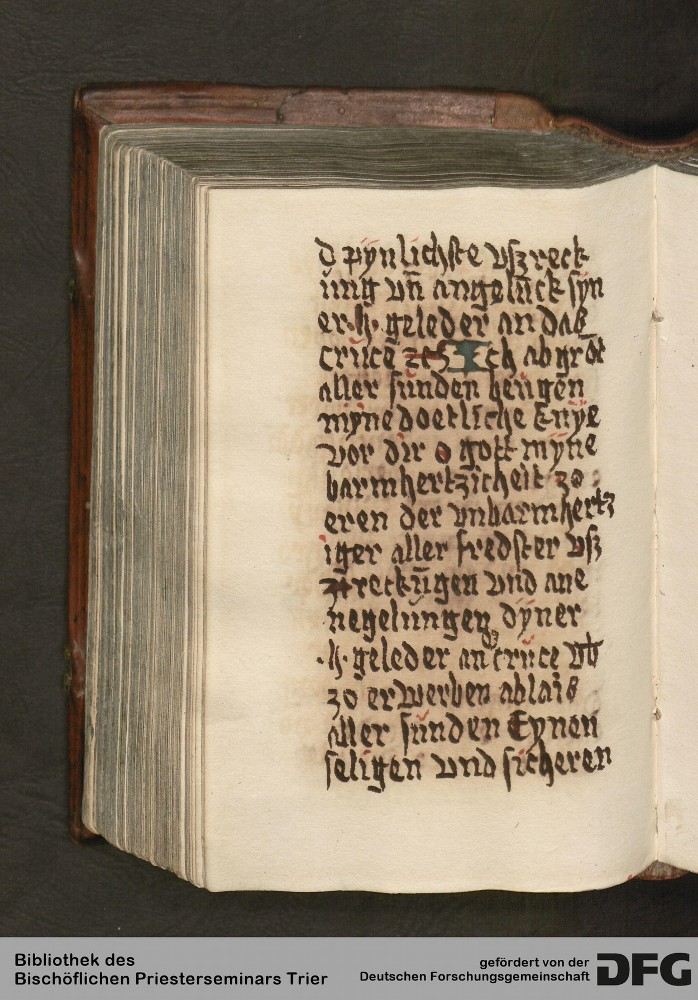 d pÿnlichste vsz reck
ung vn̄ angelūck sÿn
er .h. geleder an das
cruce zc3 Ich abgrōt
aller sunden beugen
mÿne doetliche knÿe
vor dir o gott mÿne
barmhertzicheit zo
eren der vnbarmhertz
iger aller fredster vsz
zireckūgen vnd ane
negelungen dÿner
.h. geleder an cruce vb
zo erwerben ablais
aller sunden Eynen
seligen vnd sicheren
Bibliothek des
Bischöflichen Priesterseminars Trier
gefördert von der
Deutschen Forschungsgemeinschaft
DFG